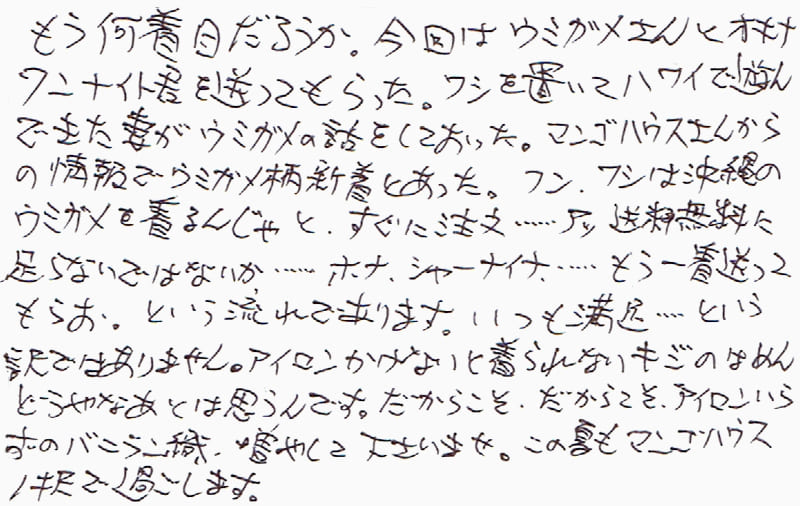 もう何着目だろうか。今回はウミガメさんとオキナ
ワンナイト君を送ってもらった。ワシを置いてハワイで遊ん
できた妻がウミガメの話をしておった。マンゴハウスさんから
の情報でウミガメ柄新着とあった。フン、ワシは沖縄の
ウミガメを着るんじゃと、すぐに注文……アッ送料無料に
足らないではないか……ホナ、シャーナイナ、……もう一着送って
もらお。という流れであります。いつも満足……という
訳ではありません。アイロンかけないと着られないキジのはめん
どうやなあとは思うんです。だからこそ、だからこそ、アイロンいら
ずのバニラン織、増やして下さいませ。この夏もマンゴハウス
1択で過ごします。